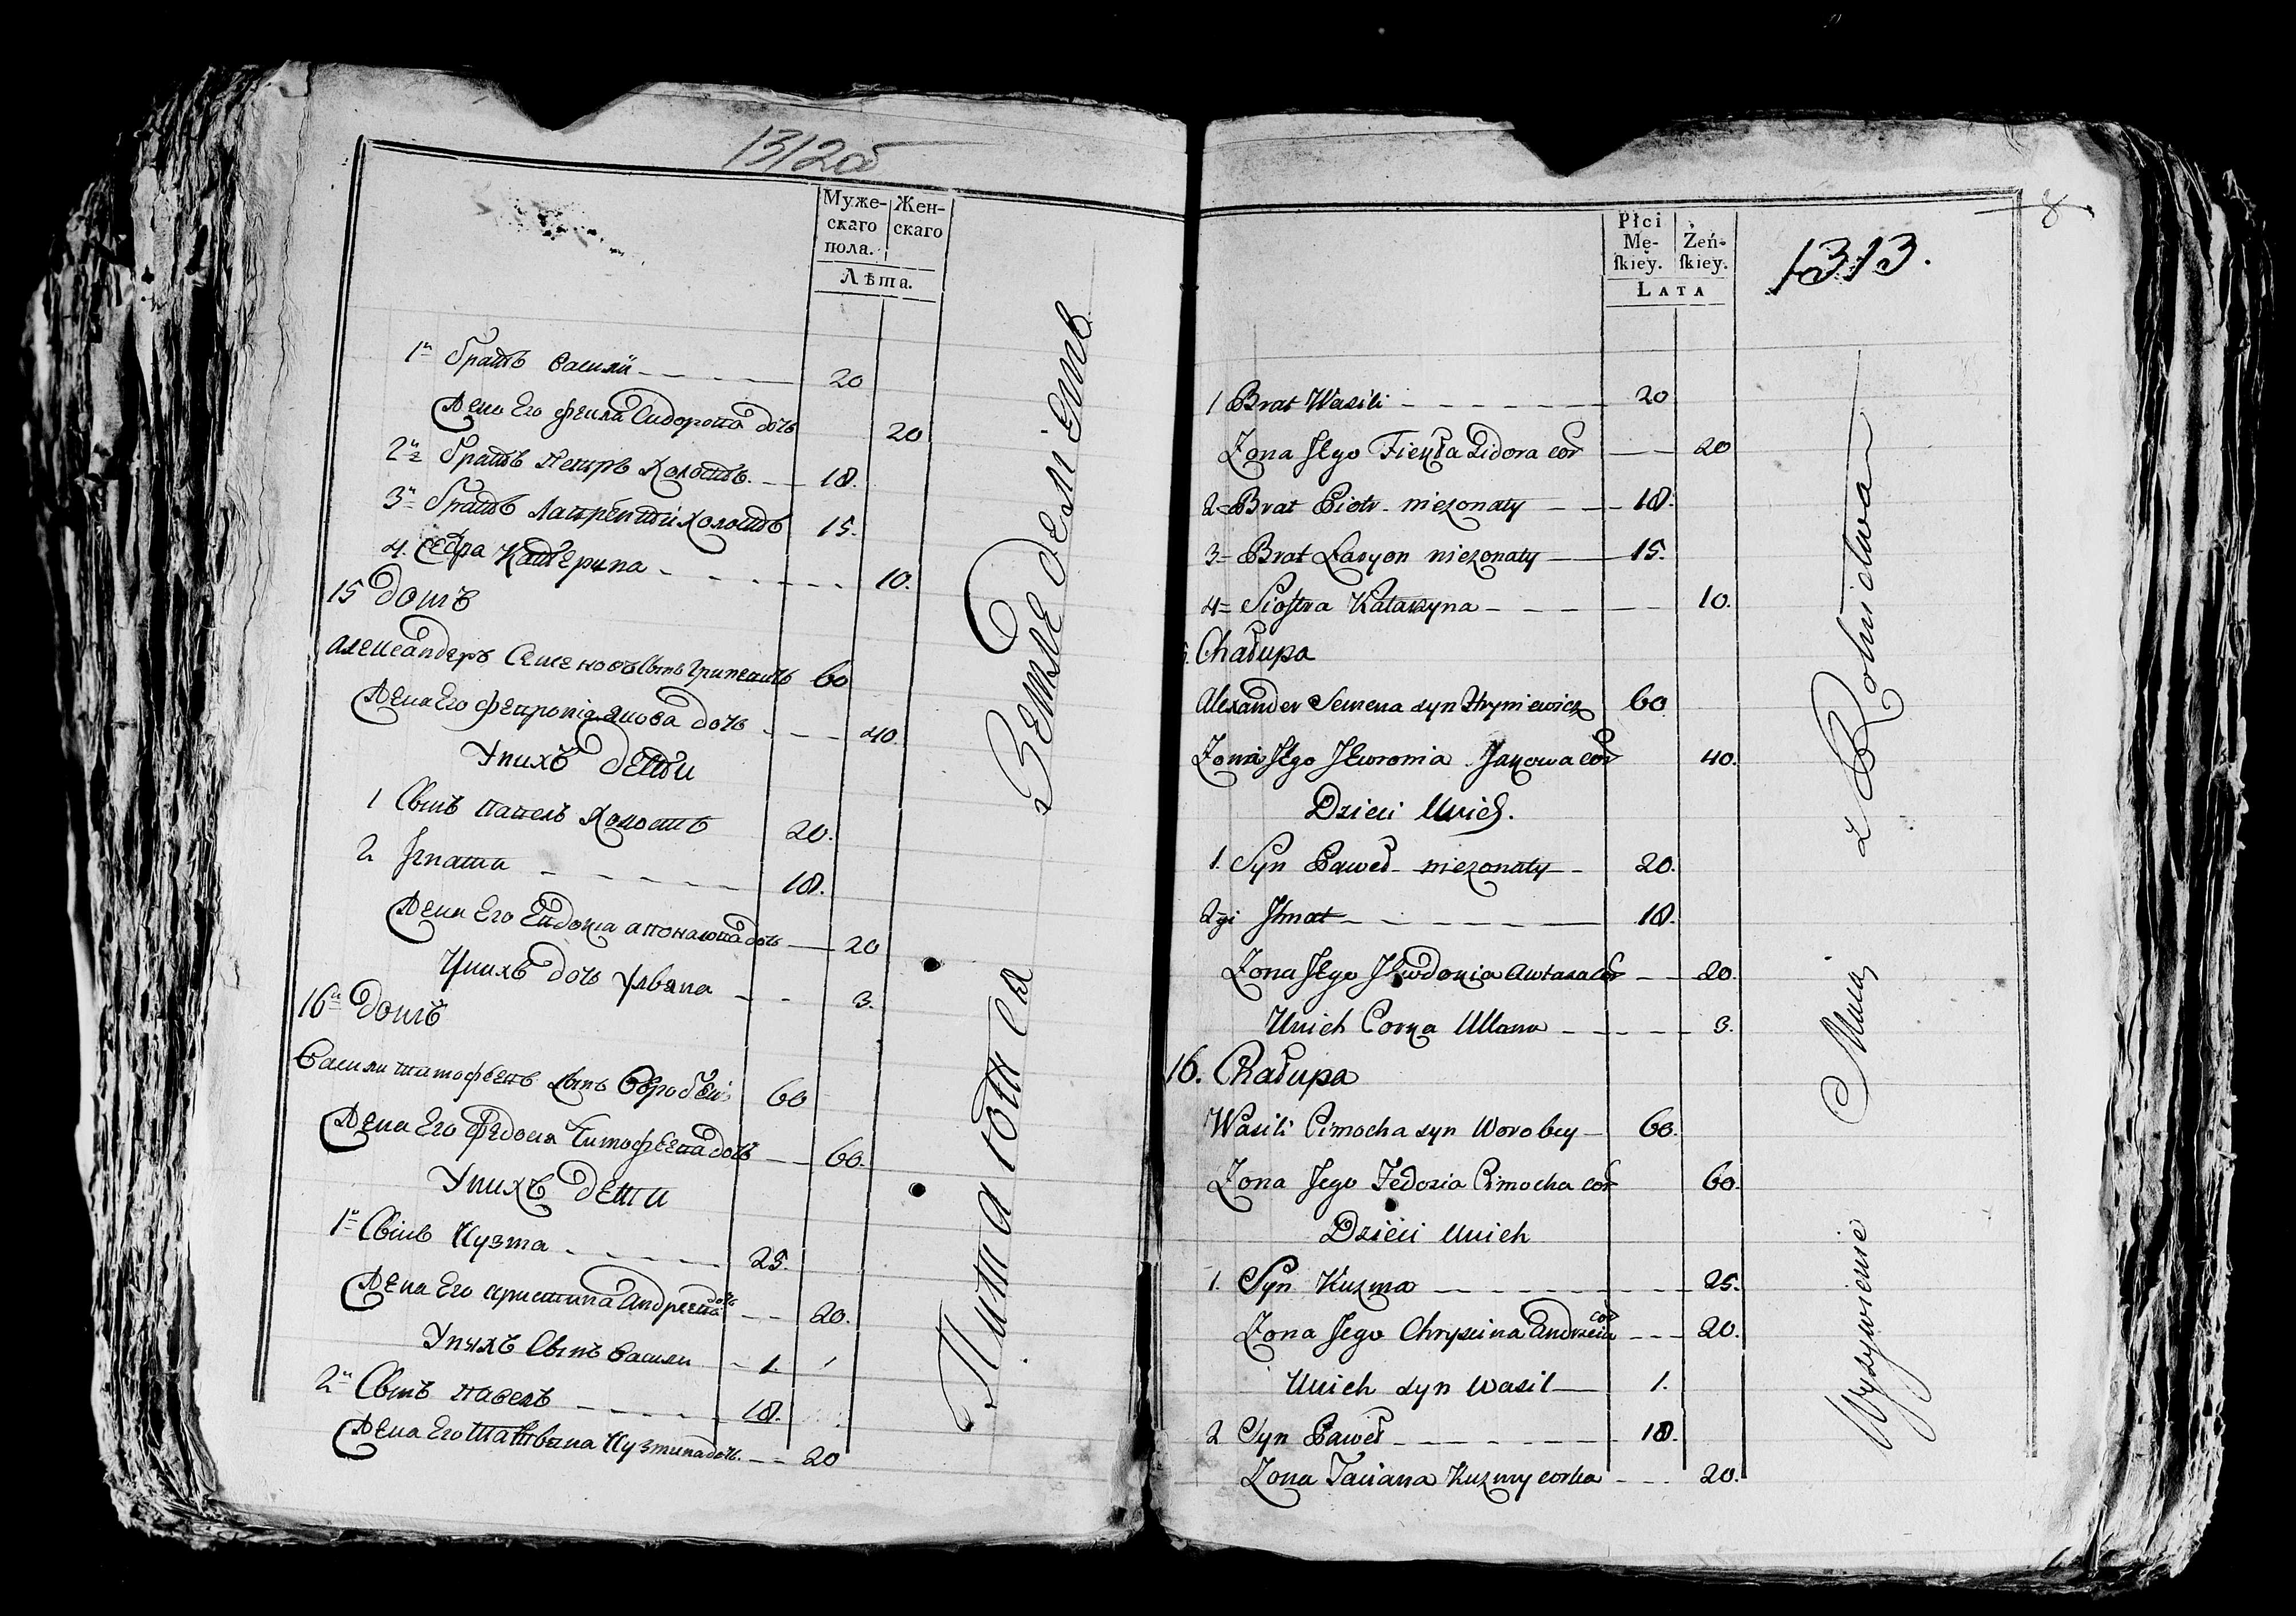 1312об
Муже-
скаго
пола.
Жен-
скаго
Лѣта.
1й братъ васили 20
Жена Его фекла Сидорова дочь 20
2й братъ Петръ холостъ 18.
3й братъ Лаврентий холостъ 15.
4. Сестра Катерина 10.
15 домъ
александеръ Семеновъ сынъ Гриневичъ 60
Жена Его Февронія Якова дочь 40.
У нихъ дети
1 Сынъ павелъ холостъ 20.
2 Игнати 18.
Жена Его Евдокия дочь 20
У нихъ дочь Ульяна 3.
16й домъ
Василий тимофеевъ сынъ Воробей 60
Жена Его Федосия Тимофеева дочь 60.
У нихъ дети
1й Сынъ Кузма 25.
Жена Его христина Андреева дочь 20.
У нихъ Сынъ васили 1.
2й Сынъ павелъ 18.
Жена Его Татьяна Кузмина дочь 20
Питаются Земледелiемъ
Płci
Mę-
ſkiey.
Żeń-
ſkiey.
LATA
1313.
8
1 Brat Wasili 20
Zona Jego Fiekła Zidora cor 20
2 Brat Piotr niezonaty 18.
3 Brat Lawon niezonaty 15.
4 Siostra Katarzyna 10.
Chałupa
Alexander Semena syn Hryniewicz 60
Zona Jego Jewronia Jakowa cor 40.
Dzieci Unich.
1. Syn Paweł niezonaty 20.
2gi Ihnat 18.
Zona Jego Jewdokia Awtasa cor 20.
Unich Corka Ullana 3.
16. Chałupa
Wasili Cimocha syn Worobey 60.
Zona Jego Fedosia Cimocha cor 60.
Dzieci Unich
1. Syn Kuzma 25.
Zona Jego Chryscina Andrzeia cor 20.
Unich syn Wasil 1.
2 Syn Paweł 18.
Zona Taciana Kuzmy corka 20.
Wyzywienie Maią z Rolnictwa